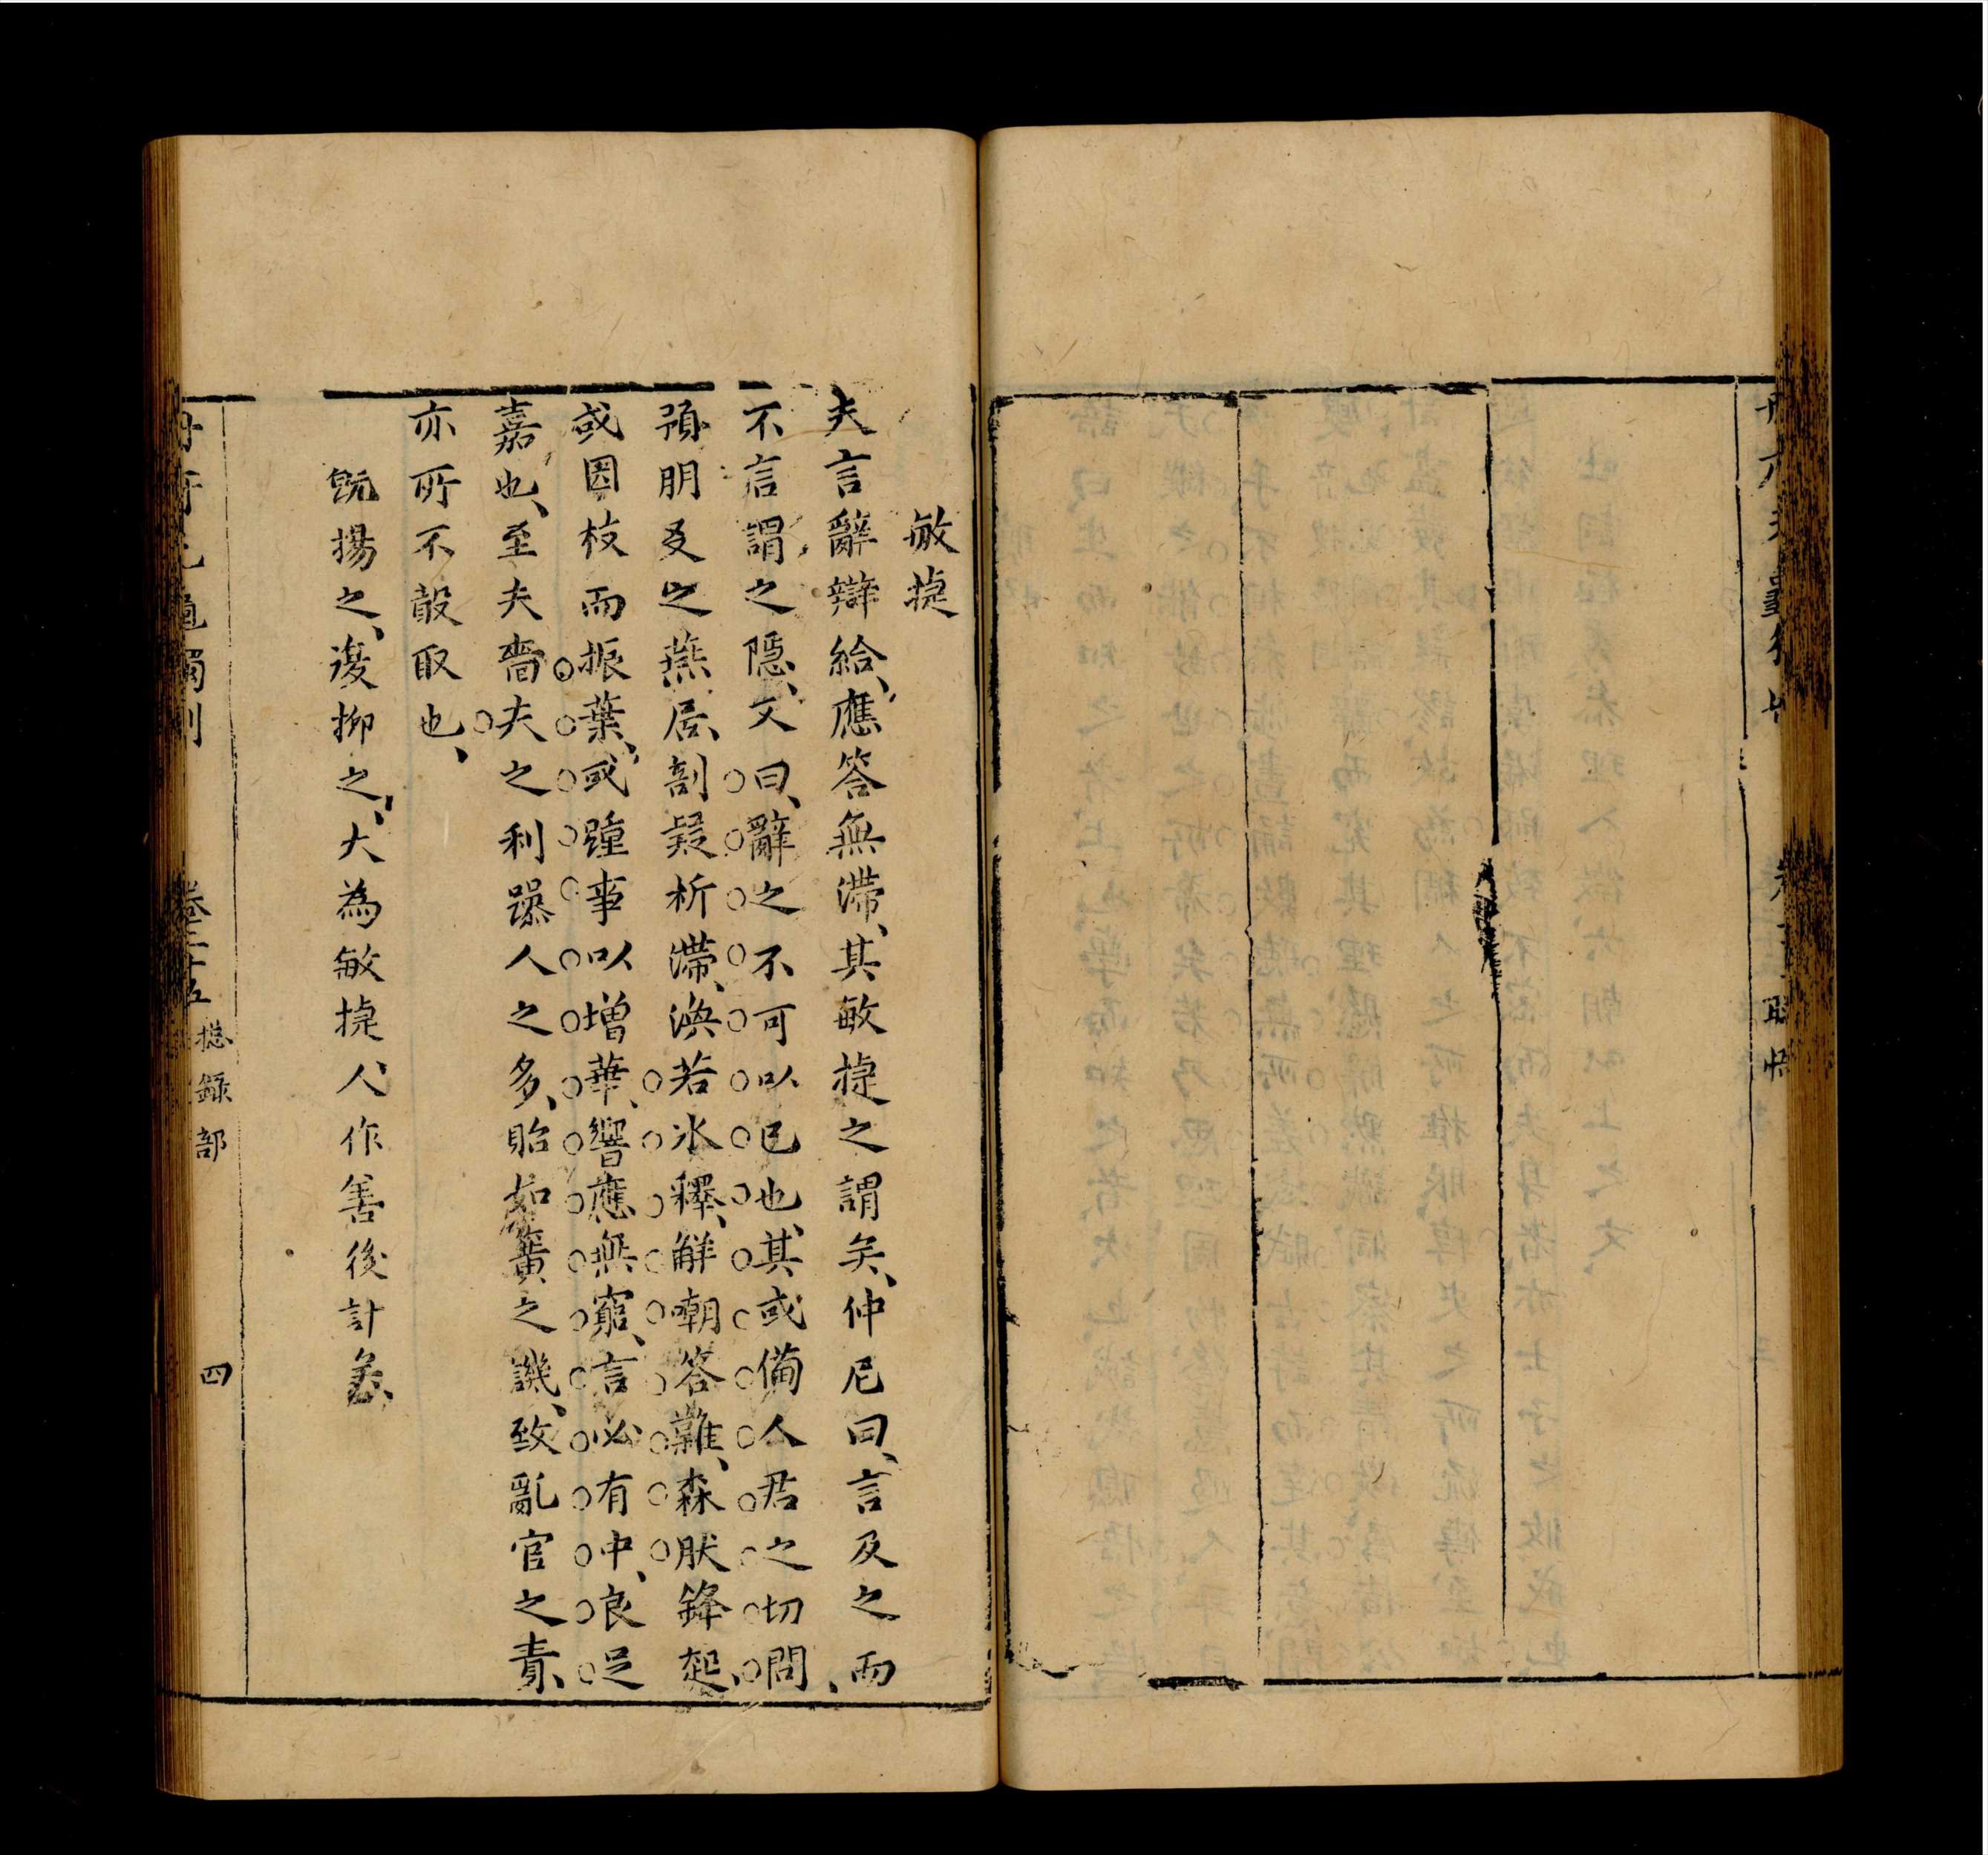 敏捷
夫言辭辯給、應答無滯、其敏捷之謂矣、仲尼曰、言及之而
不言謂之隱、文曰、辭之不可以已也、其或備人君之切問、
預朋友之燕居、剖疑析滯、渙若冰釋、觧嘲答難、森肰鋒起、
或因枝而振葉、或踵事以增華、響應無窮、言必有中、良足
嘉也、至夫嗇夫之利躁人之多、貽如簧之譏、致亂官之責、
亦所不敢取也、
既揚之、復抑之、大為敏捷人、作善後計矣、
卷三十五 捴錄部 四